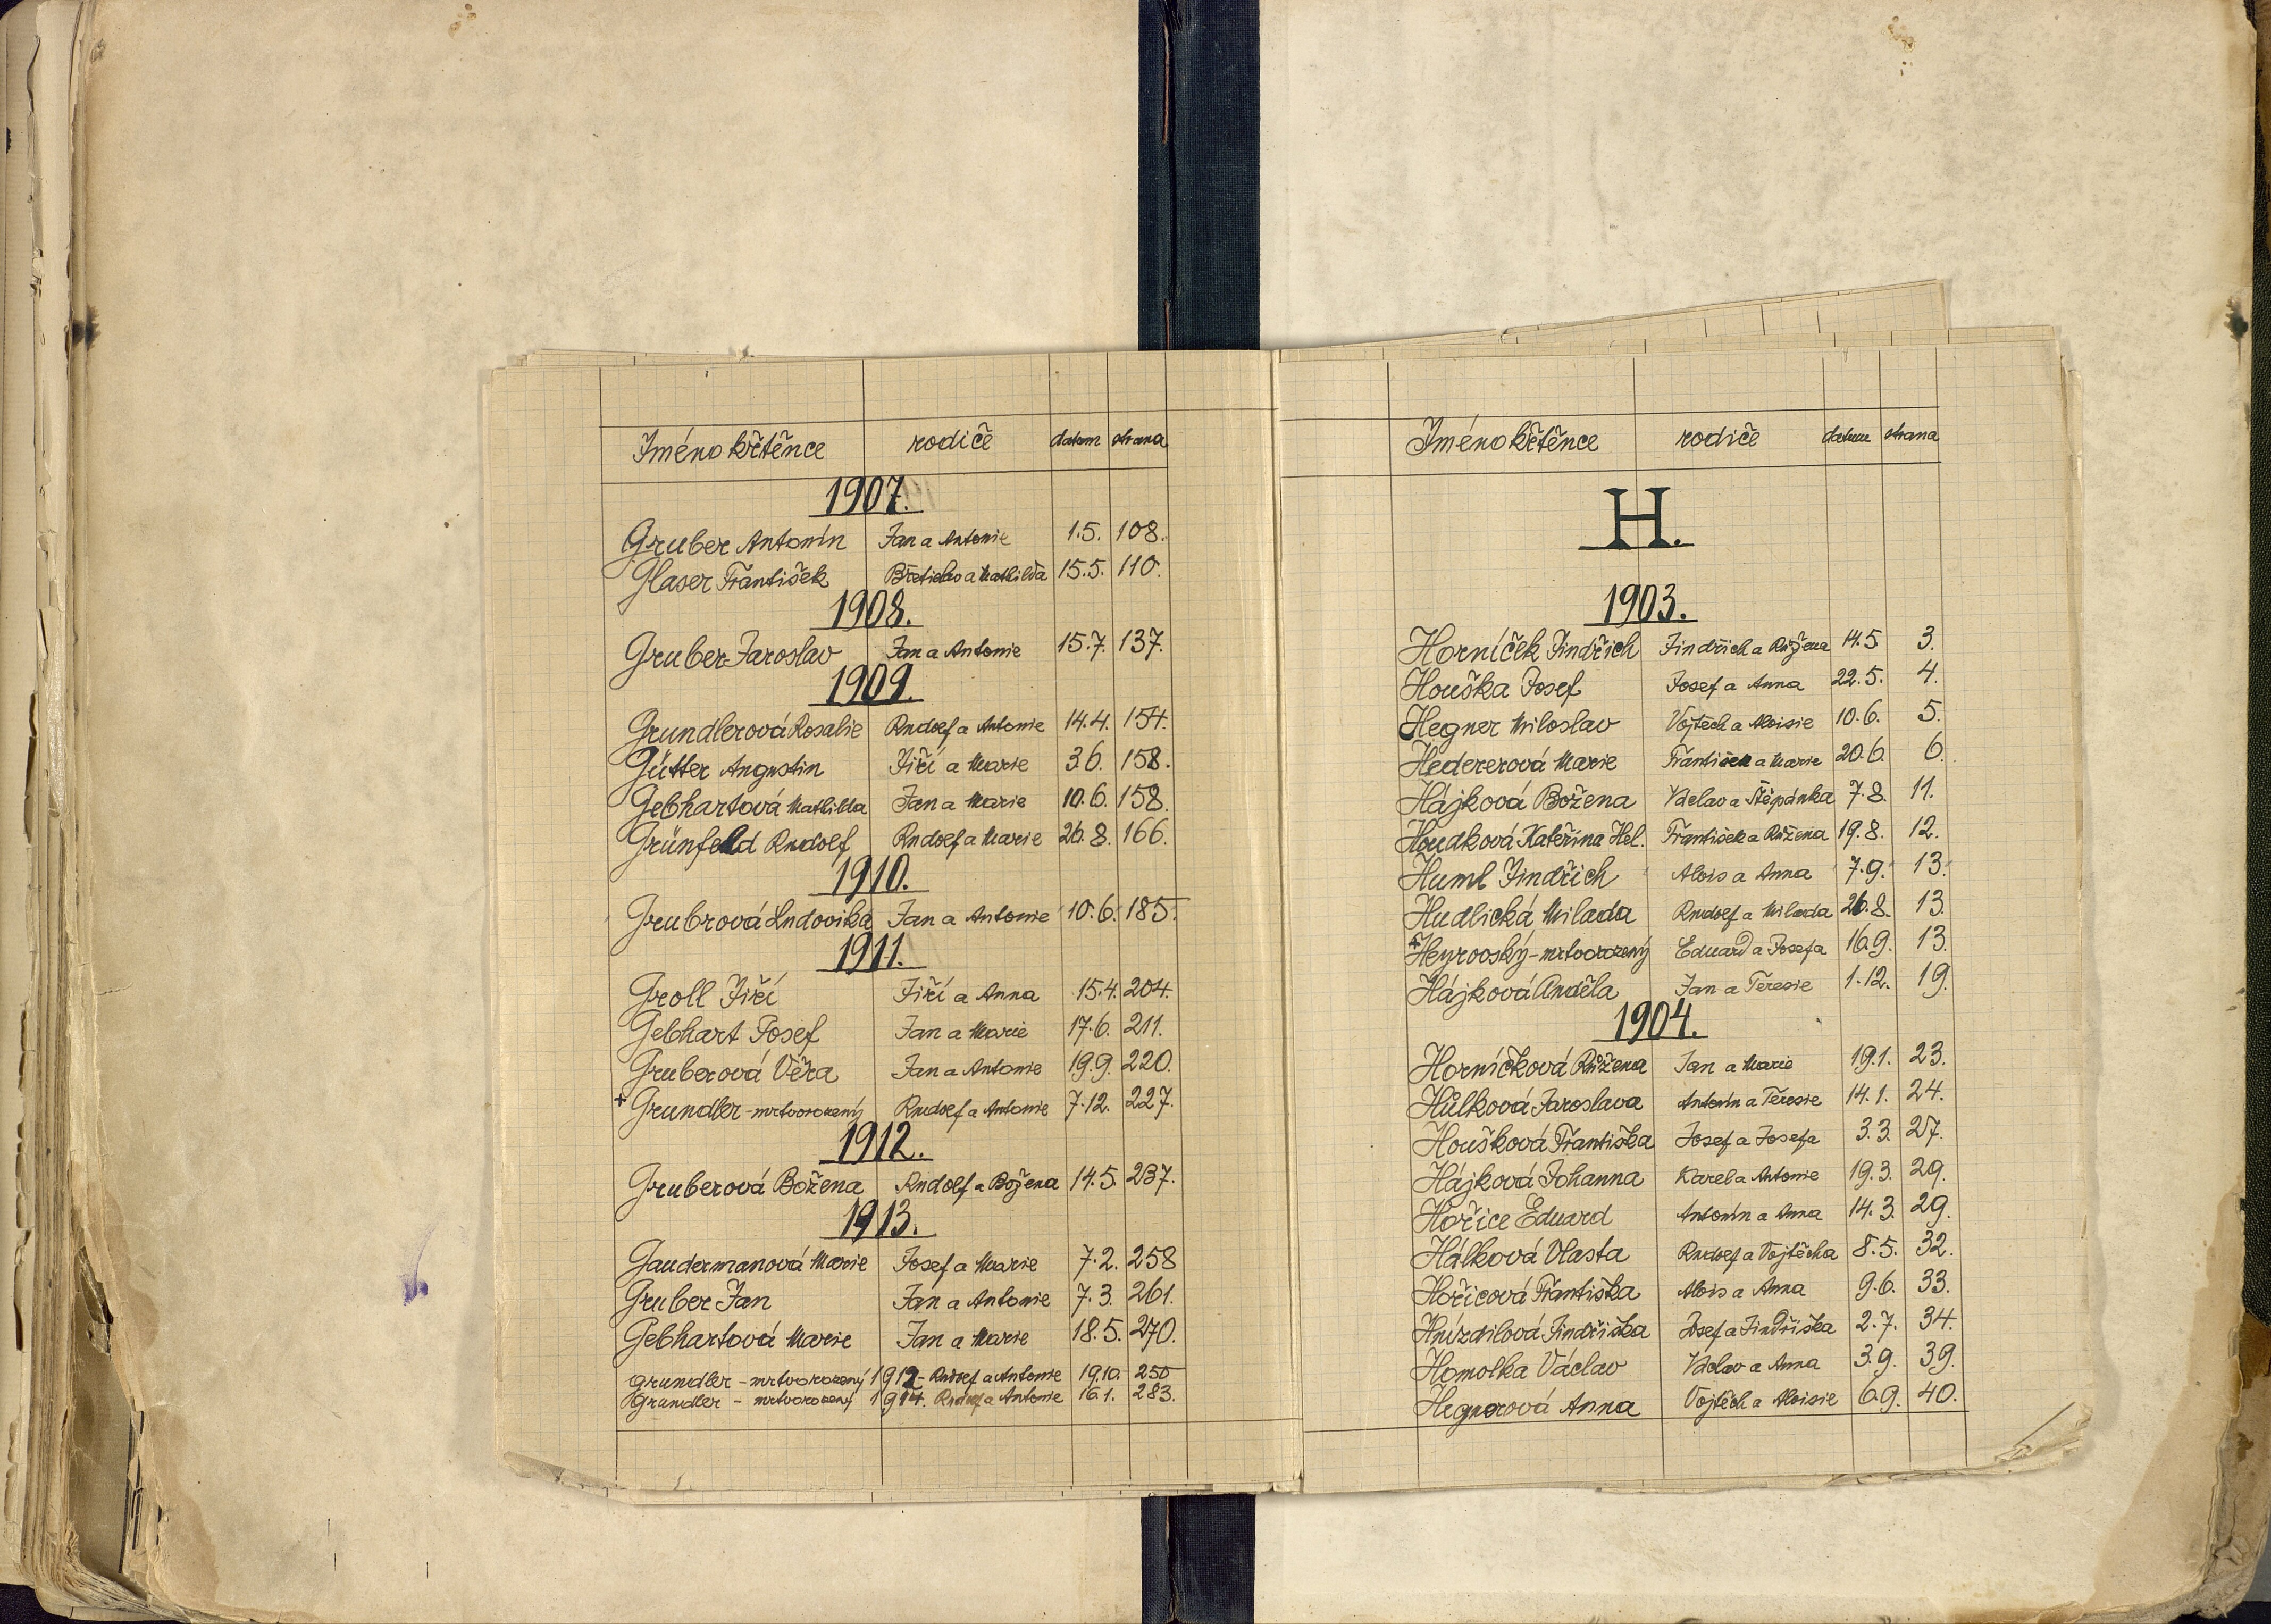 Jméno křtěnce rodiče datum strana
1907.
Gruber Antonín Jan a Antonie 1.5. 108.
Glaser František Břetislav a Mathilda 15.5. 110.
1908.
Gruber Jaroslav Jan a Antonie 15.7. 137.
1909.
Grundlerová Rosalie Rudolf a Antonie 14.4. 154.
Gütter Augustin Jiří a Marie 3.6. 158.
Gebhartová Mathilda Jan a Marie 10.6. 158.
Grünfeld Rudolf Rudolf a Marie 26.8. 166.
1910.
Grubrová Ludovika Jan a Antonie 10.6. 185.
1911.
Groll Jiří Jiří a Anna 15.4. 204.
Gebhart Josef Jan a Marie 17.6. 211.
Gruberová Věra Jan a Antonie 19.9. 220.
+ Grundler - mrtvorozený Rudolf a Antonie 7.12. 227.
1912.
Gruberová Božena Rudolf a Božena 14.5. 237.
1913.
Gaudermanová Marie Josef a Marie 7.2. 258
Gruber Jan Jan a Antonie 7.3. 261.
Gebhartová Marie Jan a Marie 18.5. 270.
Grundler - mrtvorozený 1912 - Rudolf a Antonie 19.10. 250
Grundler - mrtvorozený 1914. Rudolf a Antonie 16.1. 283.
Jméno křtěnce rodiče datum strana
H.
1903.
Horníček Jindřich Jindřich a Růžena 14.5 3.
Houška Josef Josef a Anna 22.5. 4.
Hegner Miloslav Vojtěch a Aloisie 10.6. 5.
Hedererová Marie František a Marie 20.6. 6.
Hájková Božena Václav a Štěpánka 7.8. 11.
Houdková Kateřina Hel. František a Růžena 19.8. 12.
Huml Jindřich Alois a Anna 7.9. 13.
Hudlická Milada Rudolf a Milada 26.8. 13.
+ Heyrovský - mrtvorozený Eduard a Josefa 16.9. 13.
Hájková Anděla Jan a Teresie 1.12. 19.
1904.
Horníčková Růžena Jan a Marie 19.1. 23.
Hůlková Jaroslava Antonín a Teresie 14.1. 24.
Houšková Františka Josef a Josefa 3.3. 27.
Hájková Johanna Karel a Antonie 19.3. 29.
Hořice Eduard Antonín a Anna 14.3. 29.
Hálková Vlasta Rudolf a Vojtěcha 8.5. 32.
Hořicová Františka Alois a Anna 9.6. 33.
Hnízdilová Jindřiška Josef a Jindřiška 2.7. 34.
Homolka Václav Václav a Anna 3.9. 39.
Hegnerová Anna Vojtěch a Aloisie 6.9. 40.